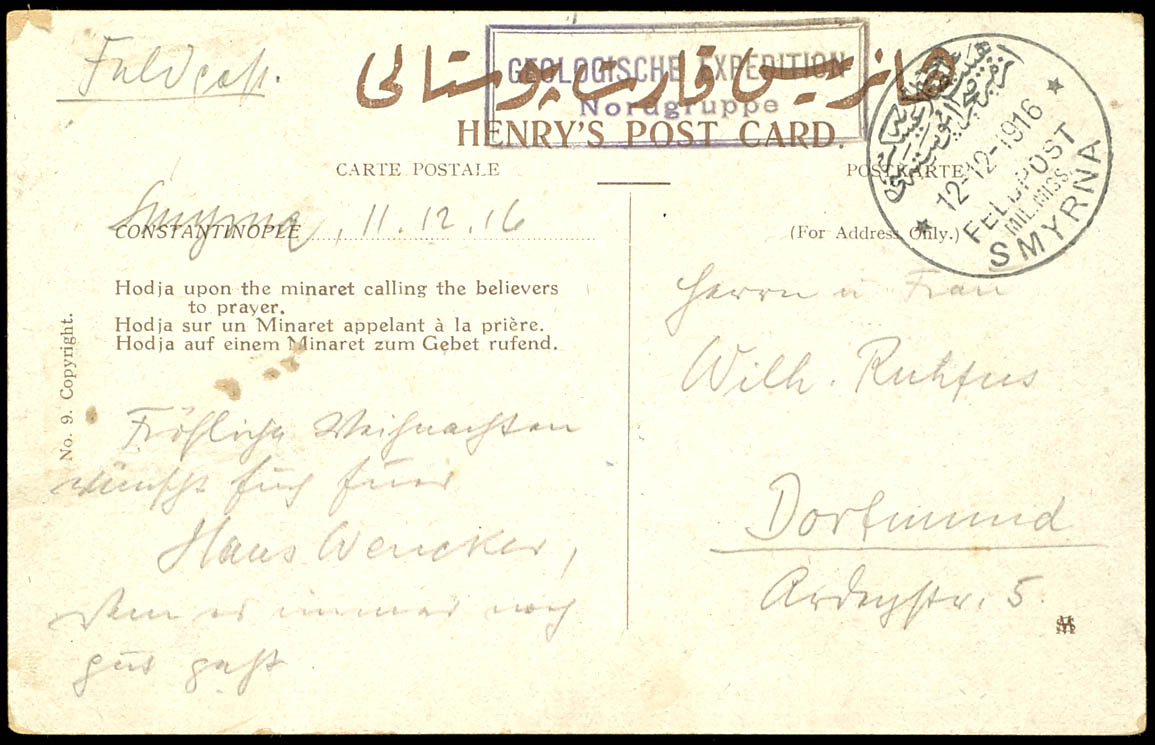 Feldpost.
هانریس قارت پوستالی
GEOLOGISCHE EXPEDITION
Nordgruppe
HENRY'S POST CARD.
CARTE POSTALE
POSTKARTE
12-12-1916
FELDPOST
MIL. MISS.
SMYRNA
Smyrna, 11.12.16
CONSTANTINOPLE
(For Address Only.)
Hodja upon the minaret calling the believers
to prayer.
Hodja sur un Minaret appelant à la prière.
Hodja auf einem Minaret zum Gebet rufend.
No. 9. Copyright.
Fröhliche Weihnachten
wünscht Euch Euer
Hans Wencker,
dem es immer noch
gut geht
Herrn u Frau
Wilh. Ruhfus
Dortmund
Ardeystr. 5.